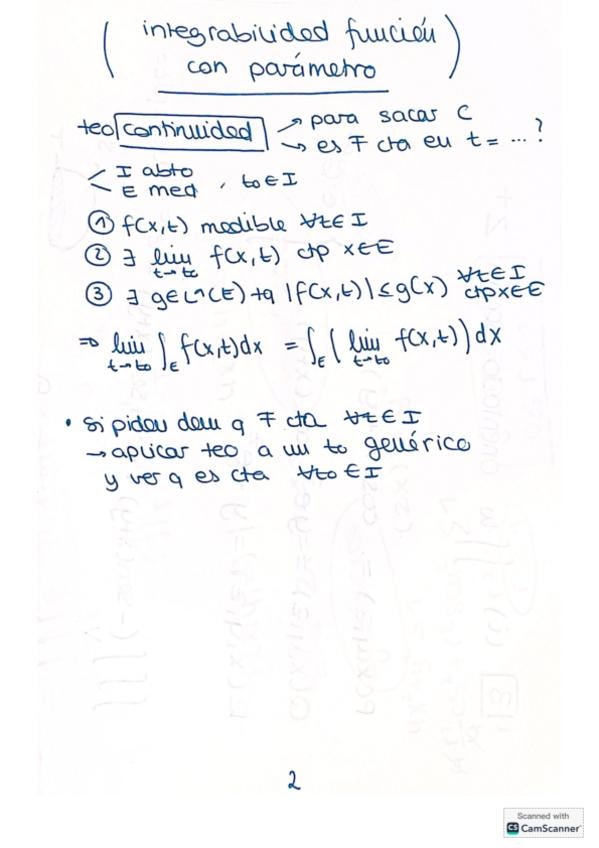 ( integrabilidad función
con parámetro )
teo continuidad → para sacar C
→ es F cta en t = ... ?
< I abto
E med , t₀ ∈ I
① f(x,t) medible ∀t∈I
② ∃ lim t→t₀ f(x,t) ctp x∈E
③ ∃ g∈L¹(E) tq |f(x,t)| ≤ g(x) ∀t∈I ctp x∈E
⇒ lim t→t₀ ∫_E f(x,t)dx = ∫_E ( lim t→t₀ f(x,t)) dx
• si piden dem q F cta ∀t∈I
→ aplicar teo a un t₀ genérico
y ver q es cta ∀t₀ ∈ I
2
Scanned with
CS CamScanner